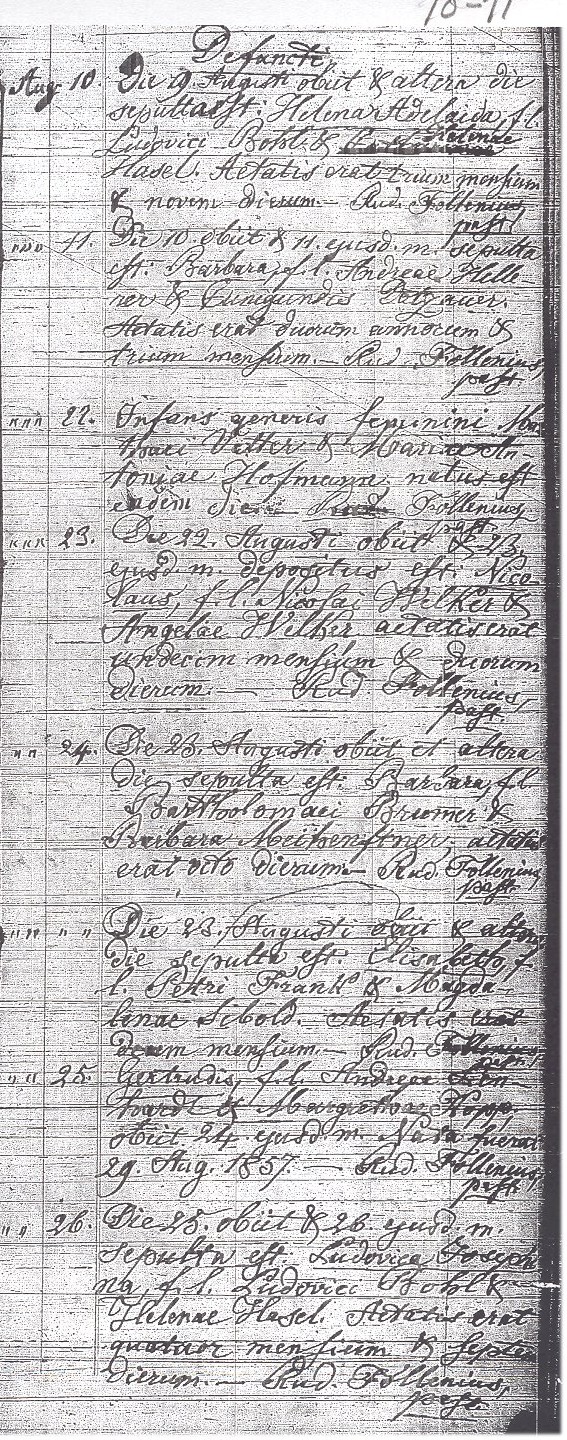 70-71
Defuncti
Aug. 10. Die 9. Augusti obiit & altera die
sepulta est: Helena Adelaida, f. l.
Ludovici Bohl & Helenae
Hasel. Aetatis erat trium mensium
& novem dierum. — Rud. Follenius,
past.
""" 11. Die 10. obiit & 11. ejusd. m. sepulta
est: Barbara, f. l. Andreae Helle-
ner & Cunigundis
Aetatis erat duorum annorum &
trium mensium. — Rud. Follenius,
past.
""" 22. Infans generis feminini
thaei Vetter & Mariae An-
toniae Hofmann. natus est
eadem die. — Follenius,
past.
""" 23. Die 22. Augusti obiit & 23.
ejusd. m. depositus est: Nico-
laus, f. l. Nicolai Welker &
Angelae Welker aetatis erat
undecim mensium & duorum
dierum. — Rud. Follenius,
past.
"" 24. Die 23. Augusti obiit et altera
die sepulta est: Barbara, f. l.
Bartholomaei Brumer &
Barbara aetatis
erat octo dierum. — Rud. Follenius,
past.
"" "" Die 23. Augusti obiit & altera
die sepulta est. Elisabetha, f.
l. Petri Frank & Magda-
lenae Sebold. Aetatis erat
decem mensium. — Rud. Follenius
past.
"" 25. Gertrudis, f. l. Andreae
hardt & Margretha Kopp.
obiit 24. ejusd. m. Nata fuerat
29. Aug. 1857. — Rud. Follenius,
past.
"" 26. Die 25. obiit & 26. ejusd. m.
sepulta est. Ludovica Joseph-
na, f. l. Ludovici Bohl &
Helenae Hasel. Aetatis erat
quatuor mensium & septem
dierum. — Rud. Follenius,
past.